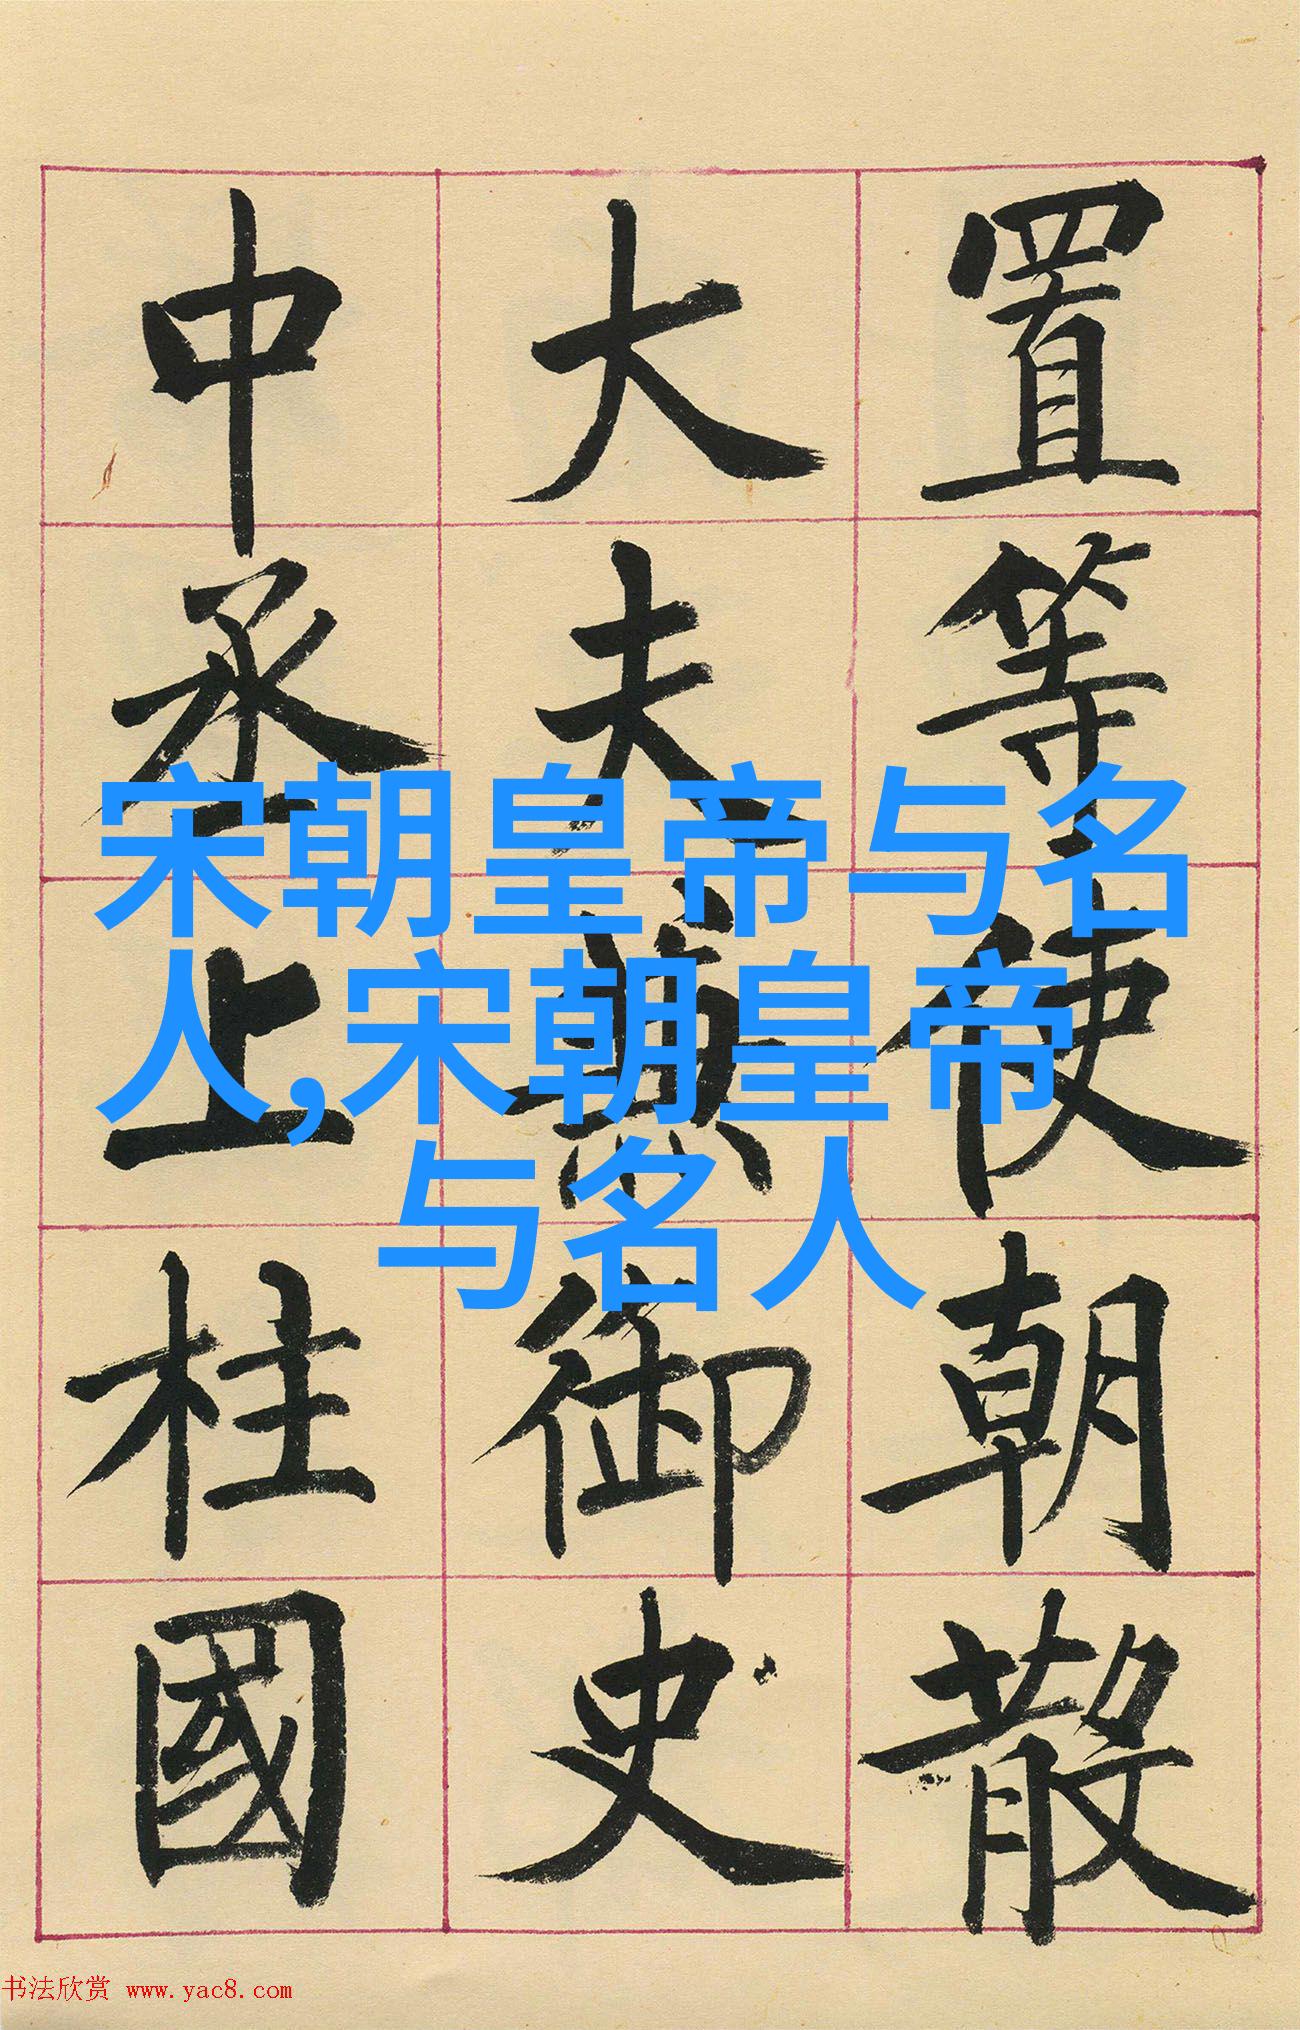 置等使朝散
大夫兼御史
中丞上柱國
宋朝皇帝与名
人,宋朝皇帝
与名人
书法欣赏 www.yac8.com